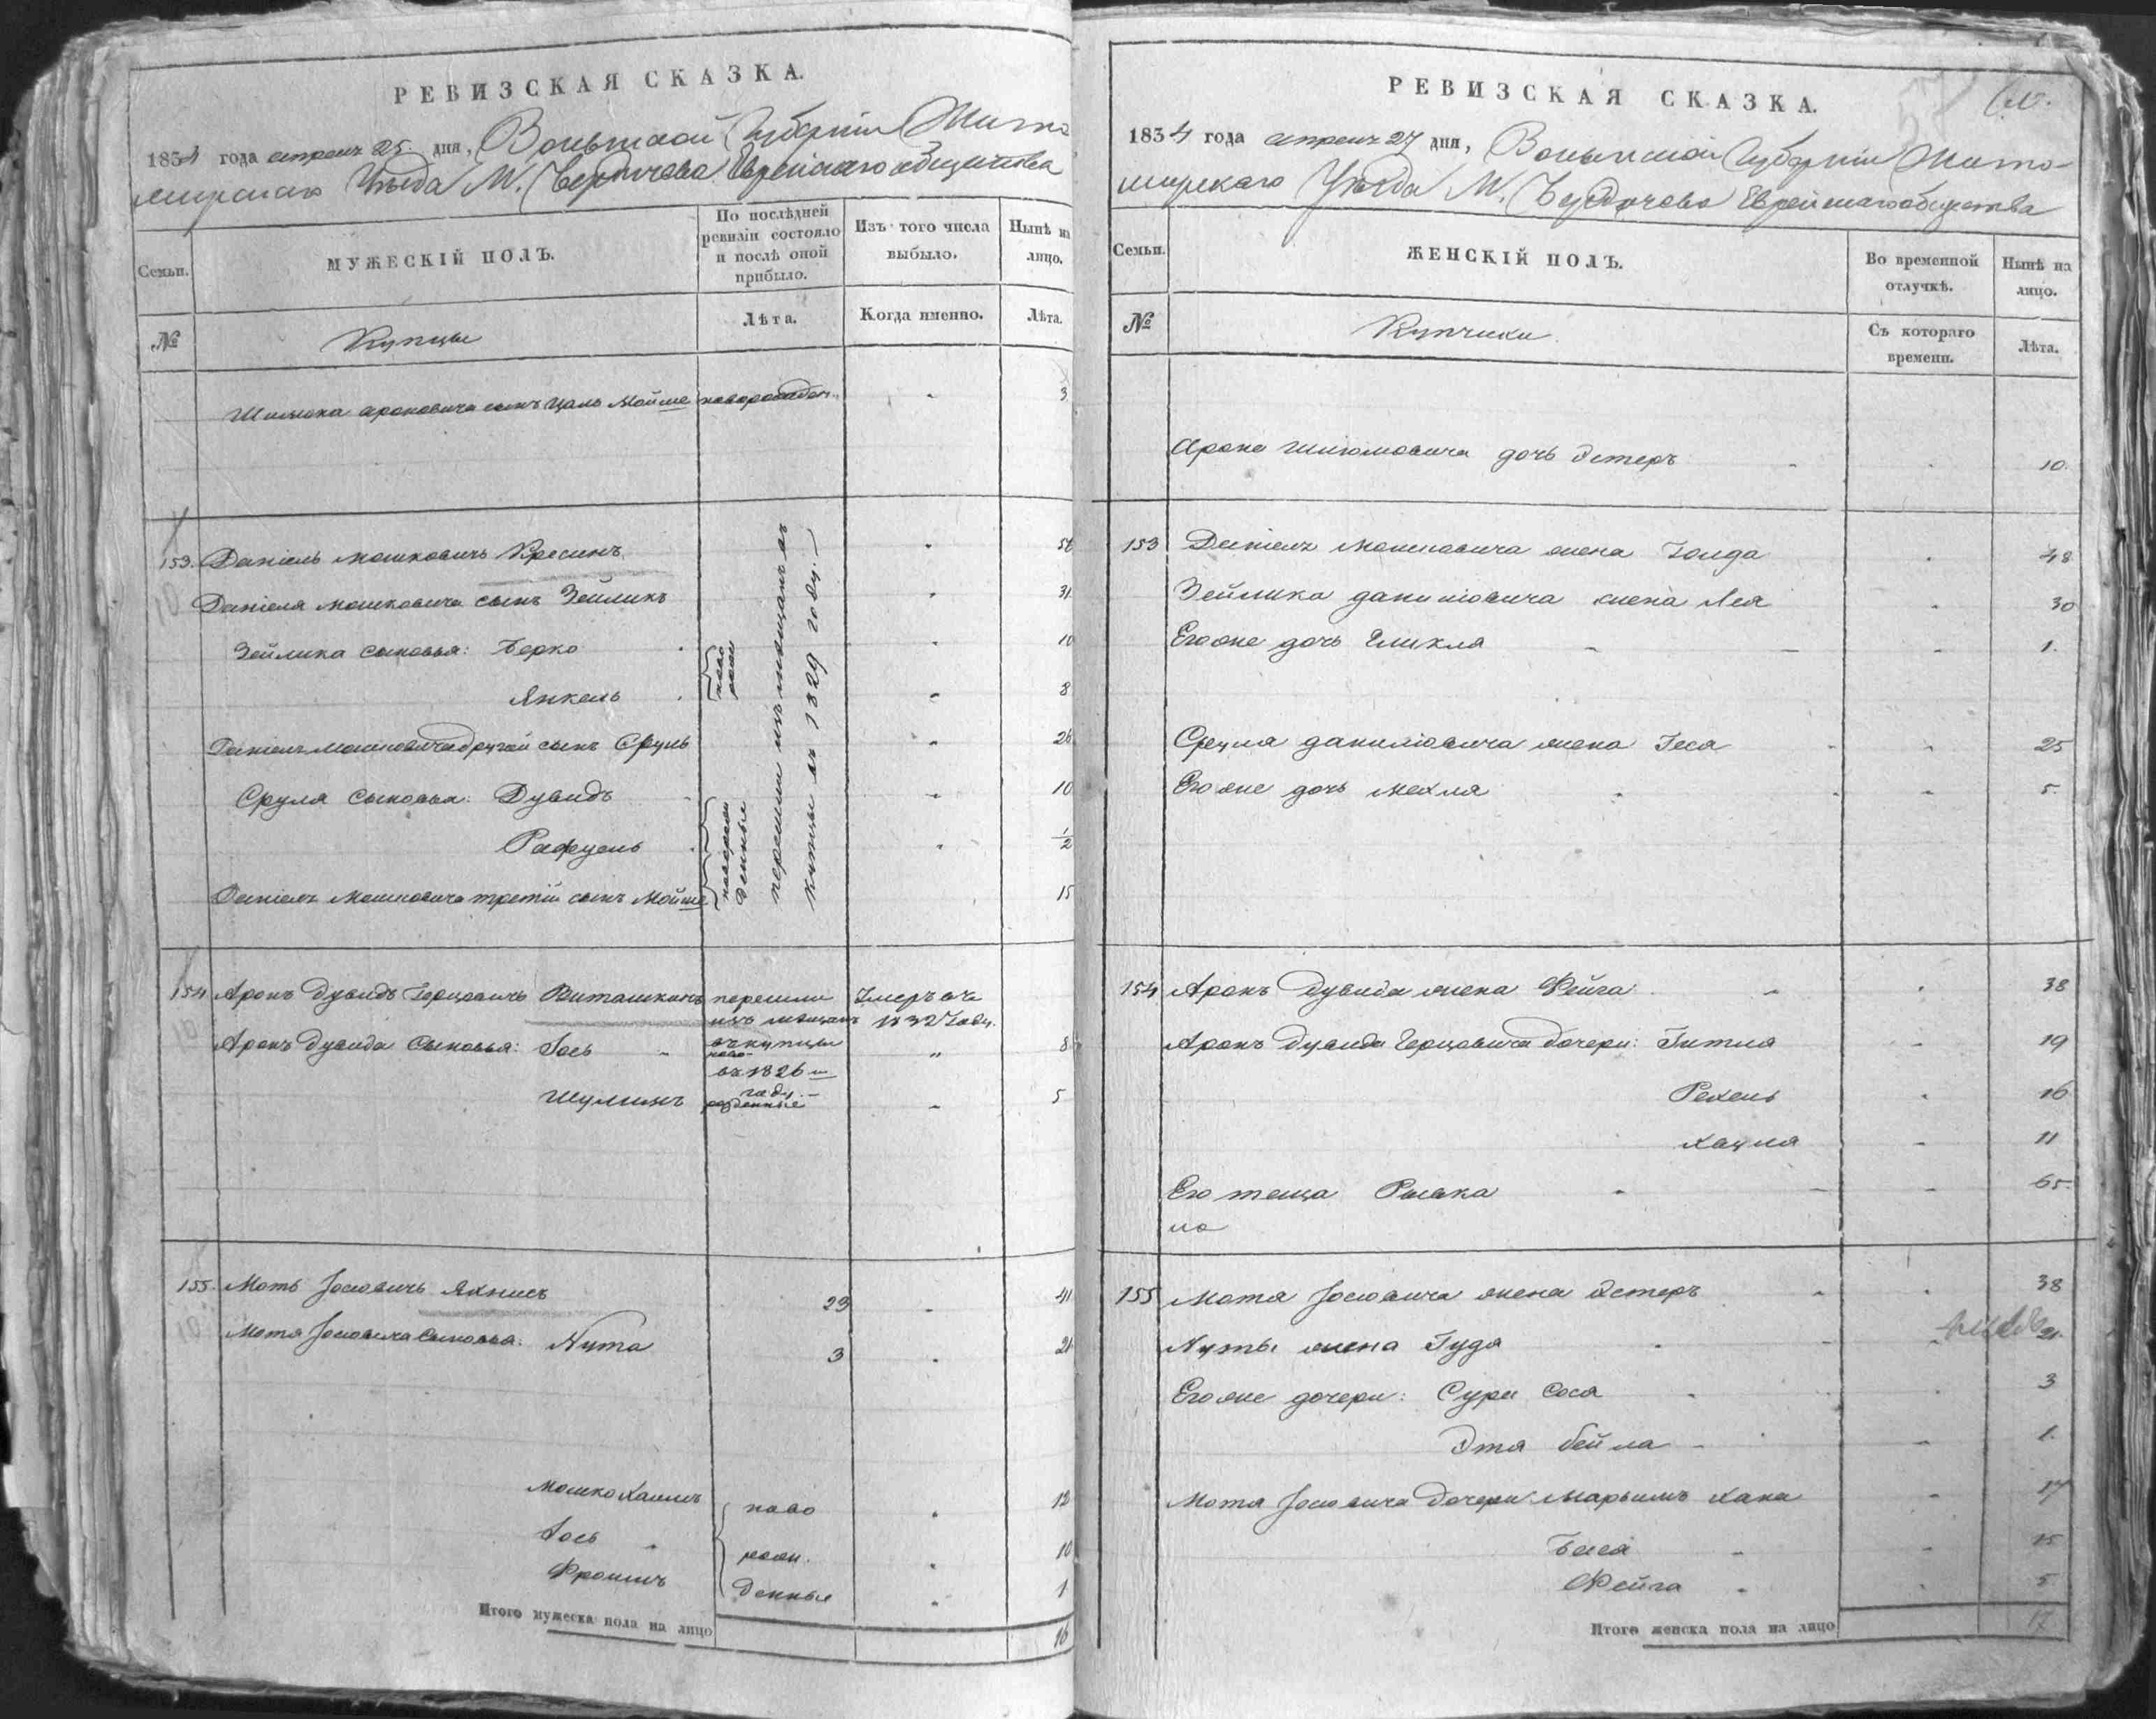 РЕВИЗСКАЯ СКАЗКА.
1834 года апреля 25. дня, Волынской Губерніи Жито
мирскаго Уѣзда М. Бердичева Еврейскаго общества
Семьи.
МУЖЕСКІЙ ПОЛЪ.
По послѣдней ревизіи состояло и послѣ оной прибыло.
Изъ того числа выбыло.
Нынѣ на лицо.
№
Купцы
Лѣта.
Когда именно.
Лѣта.
Шлиома ароновича сынъ Цаль Мойше новорожден. 3
153. Даніель мошковичъ Кресинъ
Даніеля мошковича сынъ Зейликъ 31
Зейлика сыновья: Берко 10
Янкель 8
ново
рож
Даніеля Мошковича другой сынъ Сруль 26
Сруля сыновья: Дувидъ 10
Рафуель 1/2
Даніеля Мошковича третій сынъ Мойше 15
новорож
денные
перешли изъ мещанъ въ
купцы въ 1829 году.
154 Аронъ Дувидъ Герцовичъ Виташкинъ перешли Умеръ въ
изъ мещанъ 1832 Году.
Аронъ Дувида Сыновья: Іось въ купцы 8
ново
въ 1826 м
году.
Шулимъ рожденные 5
155. Моть Іосіовичъ Яхнисъ 23 41
Мотя Іосіовича Сыновья: Нута 3 21
Мошко Хаимъ ново 12
Іось рож. 10
Фроимъ денные 1
Итого мужеска пола на лицо 16
РЕВИЗСКАЯ СКАЗКА.
1834 года апреля 27 дня, Волынской Губерніи Жито-
мирскаго Уѣзда М. Бердичева Еврейскаго общества
Семьи.
ЖЕНСКІЙ ПОЛЪ.
Во временной отлучкѣ.
Нынѣ на лицо.
№
Купчихи
Съ котораго времени.
Лѣта.
Арона Шліомовича дочь Эстеръ 10.
153 Даніеля Мошковича жена Голда 48
Зейлика даниліовича жена Лея 30
Егоже дочь Гликля 1.
Сруля даниліовича жена Геся 25
Егоже дочь Мехля 5.
154 Аронъ Дувида жена Фейга 38
Аронъ Дувида Герцовича дочери: Гитля 19
Рехель 16
Хацля 11
Его теща Рывка 65.
155 Мотя Іосіовича жена Эстеръ 38
Нуты жена Гудя 21.
Егоже дочери: Сура Сося 3
Эта бейла 1.
Мотя Іосіовича дочери: Марьимъ хана 17
Бася 15
Фейга 5
Итого женска пола на лицо 17